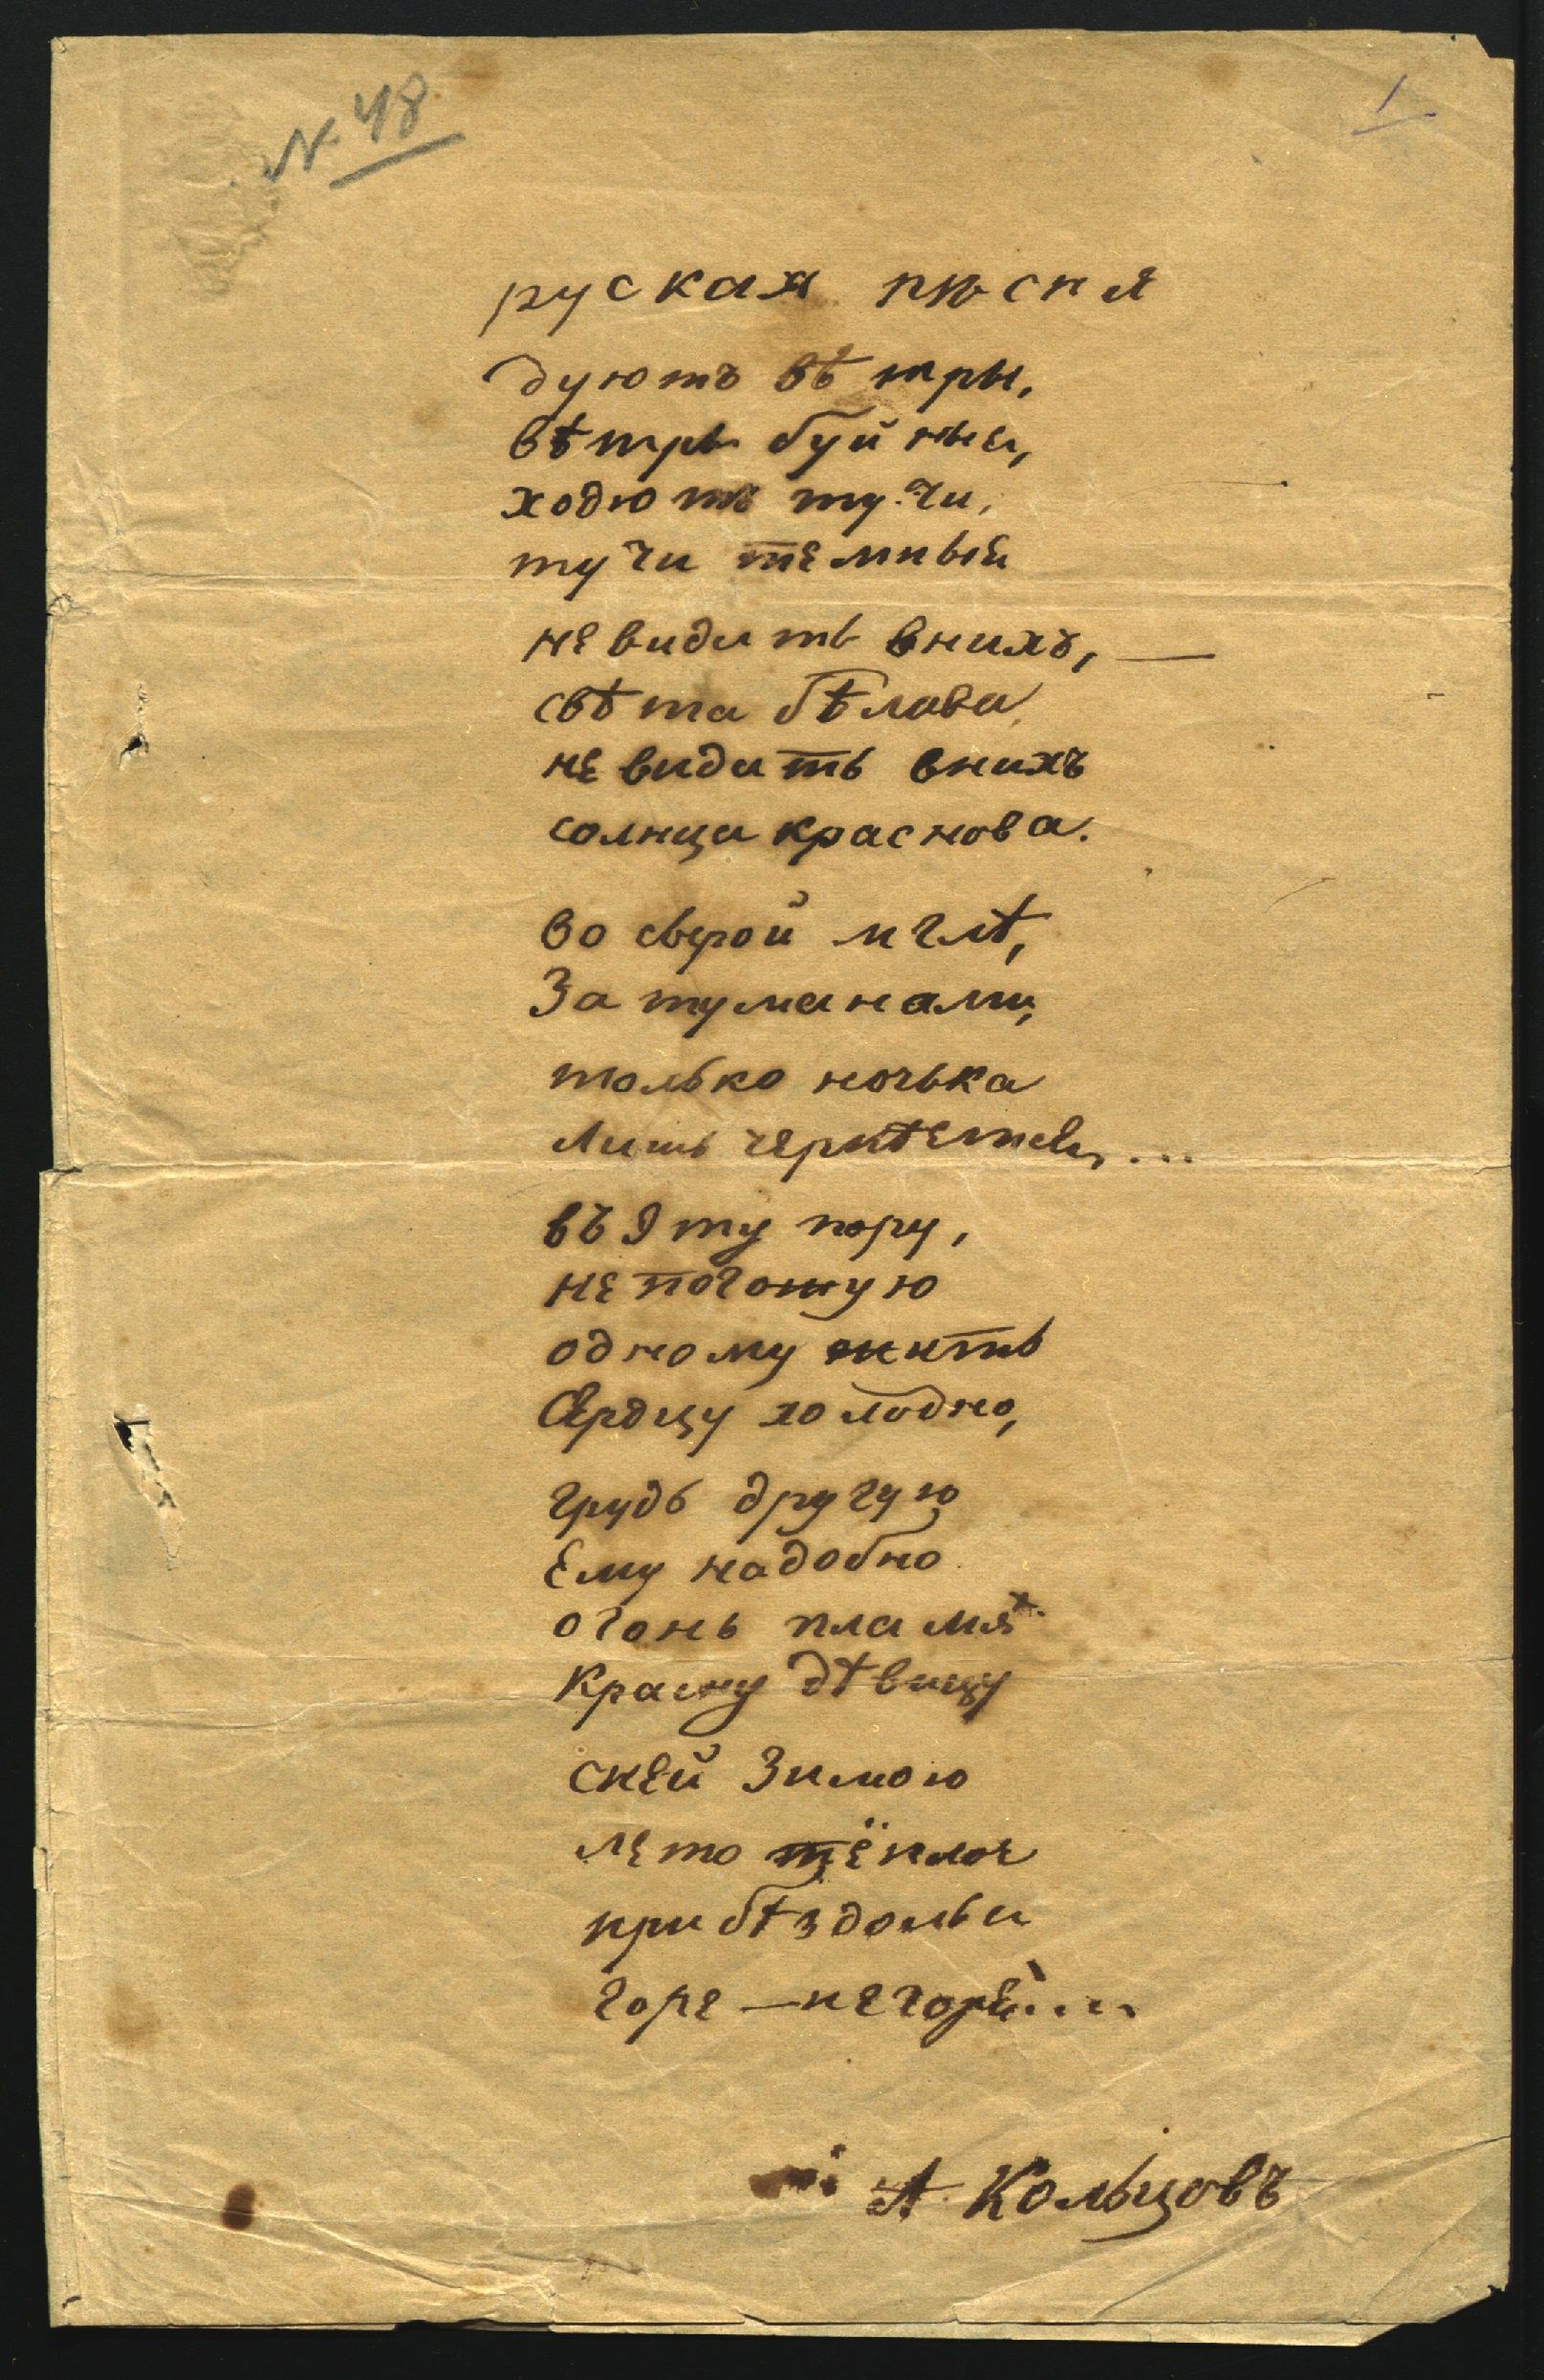 N. 48
1
руская пѣсня
дуютъ вѣтры,
вѣтры буйныи,
ходютъ тучи,
тучи темныи
не видить внихъ, —
свѣта бѣлава
не видить внихъ
солнца краснова.
Во сырой мглѣ,
За туманами,
только ночька
Лишь чернѣется ...
въ эту пору,
не погожую
одному жить
Сердцу холодно,
грудь другую
Ему надобно
огонь пламя
Красну дѣвицу
Снѣй Зимою
лето тёплое
при бѣздольи
горе — негоре....
А. Кольцовъ